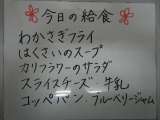 今日の給食
わかさぎフライ
はくさいのスープ
カリフラワーのサラダ
スライスチーズ 牛乳
コッペパン ブルーベリージャム